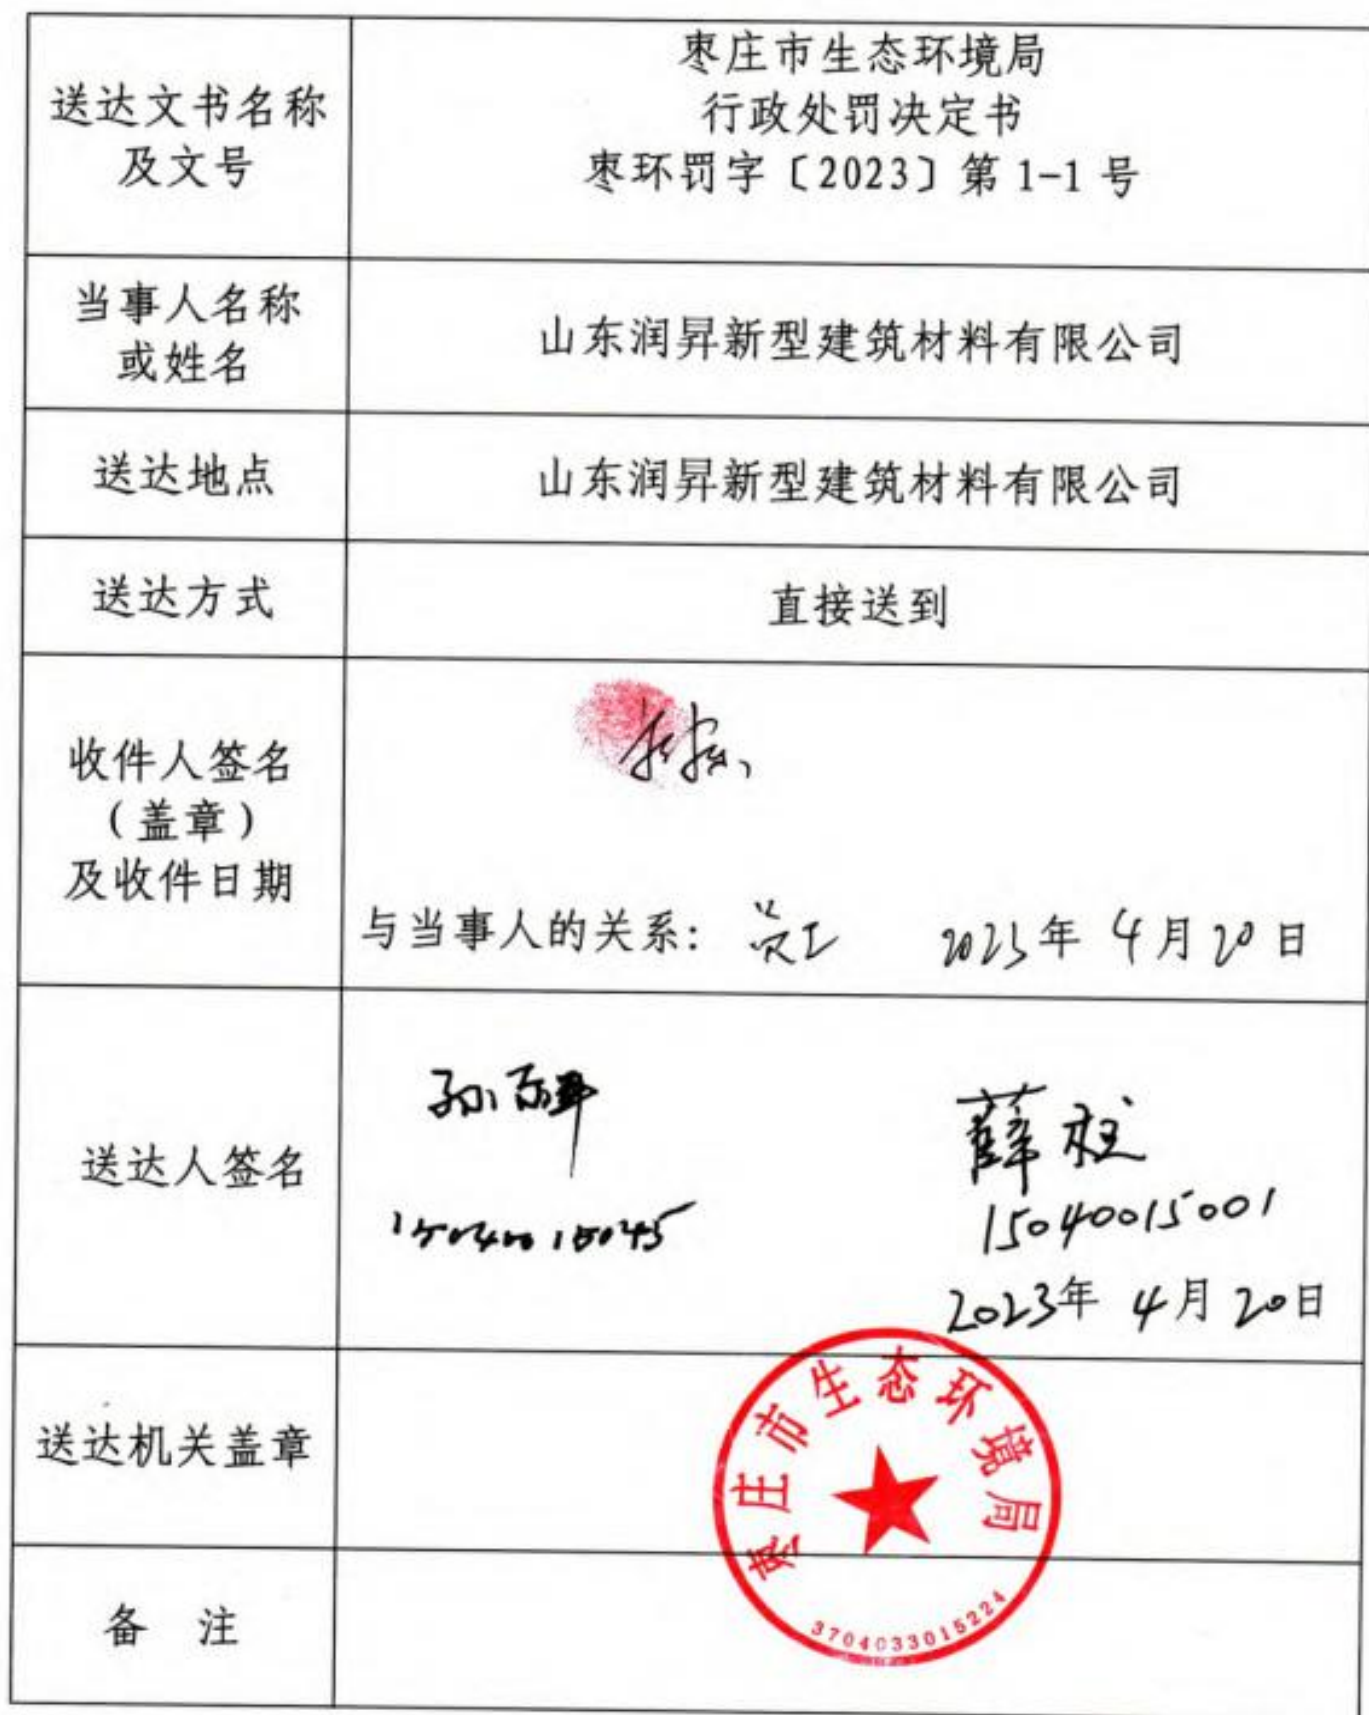 送达文书名称
及文号
枣庄市生态环境局
行政处罚决定书
枣环罚字〔2023〕第 1-1 号
当事人名称
或姓名
山东润昇新型建筑材料有限公司
送达地点
山东润昇新型建筑材料有限公司
送达方式
直接送到
收件人签名
(盖章)
及收件日期
与当事人的关系: 员工 2023年 4月20日
送达人签名
薛
15040015045
15040015001
2023年 4月20日
送达机关盖章
枣庄市生态环境局
3704033015224
备 注